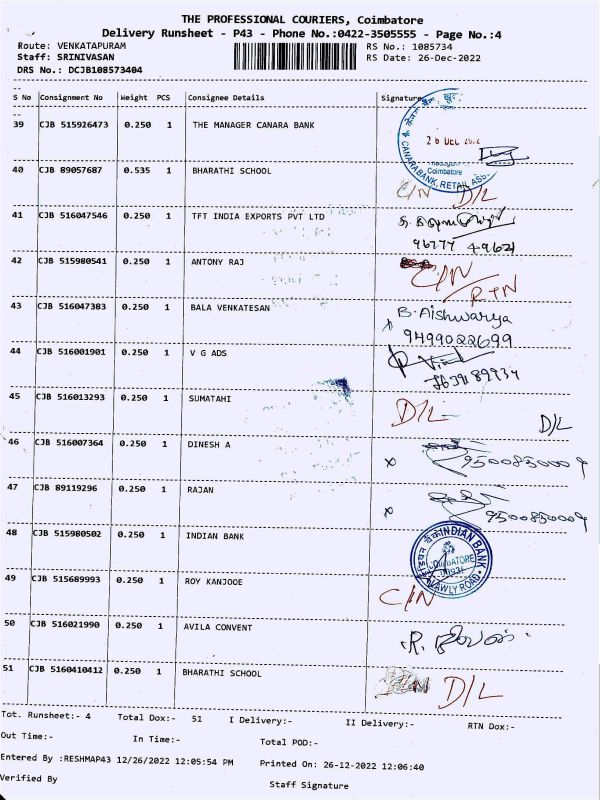 THE PROFESSIONAL COURIERS, Coimbatore
Delivery Runsheet - P43 - Phone No.:0422-3505555 - Page No.:4
Route: VENKATAPURAM RS No.: 1085734
Staff: SRINIVASAN RS Date: 26-Dec-2022
DRS No.: DCJB108573404
S No Consignment No Weight PCS Consignee Details Signature
39 CJB 515926473 0.250 1 THE MANAGER CANARA BANK
26 DEC 2022
Coimbatore
CANARA BANK, RETAIL ASS
40 CJB 89057687 0.535 1 BHARATHI SCHOOL C/N D/L
41 CJB 516047546 0.250 1 TFT INDIA EXPORTS PVT LTD
96777 49621
42 CJB 515980541 0.250 1 ANTONY RAJ C/N
RTN
43 CJB 516047383 0.250 1 BALA VENKATESAN B. Aishwarya
9499022699
44 CJB 516001901 0.250 1 V G ADS
7639189934
45 CJB 516013293 0.250 1 SUMATAHI D/L D/L
46 CJB 516007364 0.250 1 DINESH A x 9500850009
47 CJB 89119296 0.250 1 RAJAN x 9500850009
48 CJB 515980502 0.250 1 INDIAN BANK
INDIAN BANK
COIMBATORE
49 CJB 515689993 0.250 1 ROY KANJOOE C/N
50 CJB 516021990 0.250 1 AVILA CONVENT
51 CJB 5160410412 0.250 1 BHARATHI SCHOOL D/L
Tot. Runsheet:- 4 Total Dox:- 51 I Delivery:- II Delivery:- RTN Dox:-
Out Time:- In Time:- Total POD:-
Entered By :RESHMAP43 12/26/2022 12:05:54 PM Printed On: 26-12-2022 12:06:40
Verified By Staff Signature